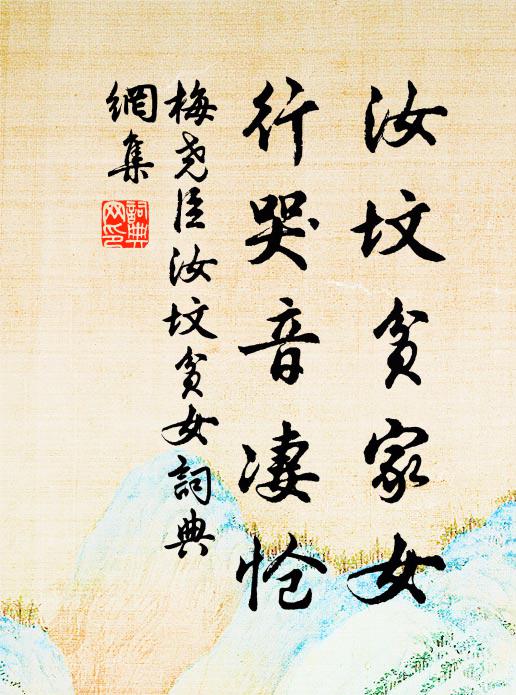 汝坟贫家女
行哭音凄怆
梅尧臣汝坟贫女詞典
網集
詞典网印